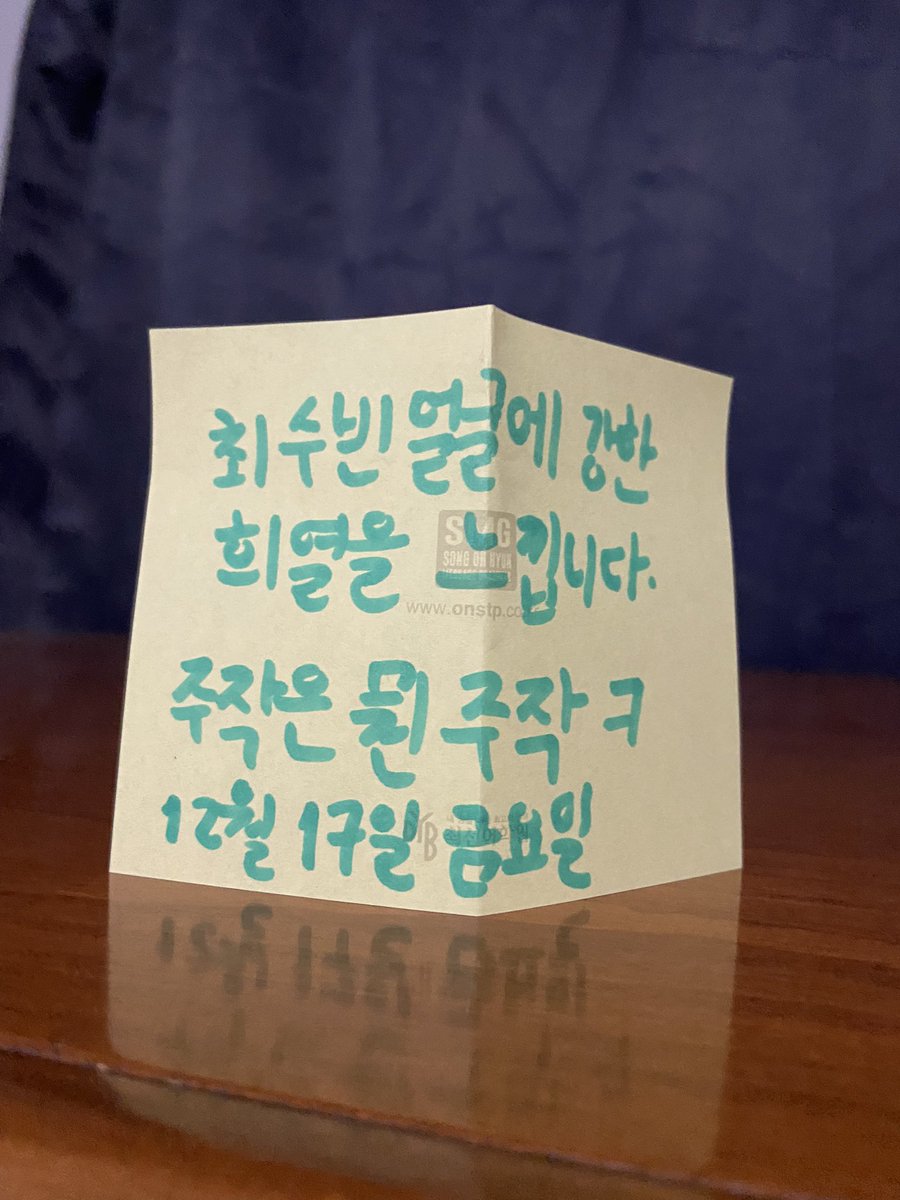 최수빈 얼굴에 강한
희열을 느킵니다.
www.onstp.co
주작은 뭔 주작 ㅋ
12월 17일 금요일